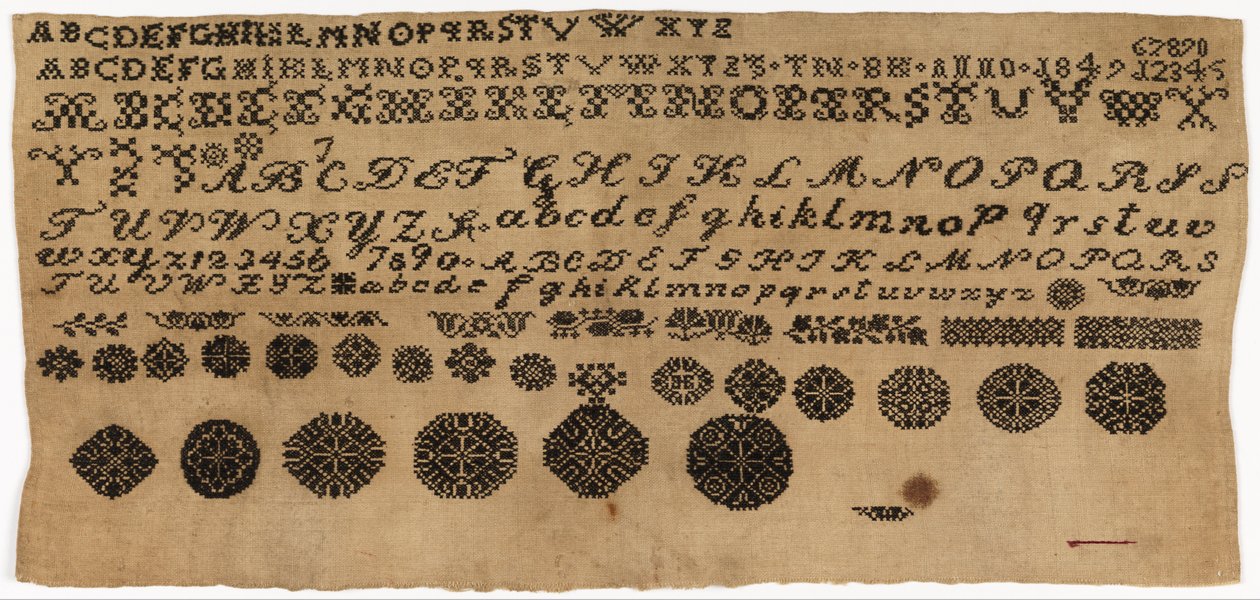 A B C D E F G H I K L M N O P Q R S T V W X Y Z
67890
A B C D E F G H I K L M N O P Q R S T V W X Y Z · TN · BH · ANNO · 1849 12345
A B C D E F G H I K L M N O P Q R S T U V W X
Y Z A B C D E F G H I K L M N O P Q R S S
T U V W X Y Z a b c d e f g h i k l m n o p q r s t u v
w x y z 1 2 3 4 5 6 7 8 9 0 · A B C D E F G H I K L M N O P Q R S
T U V W X Y Z a b c d e f g h i k l m n o p q r s t u v w x y z